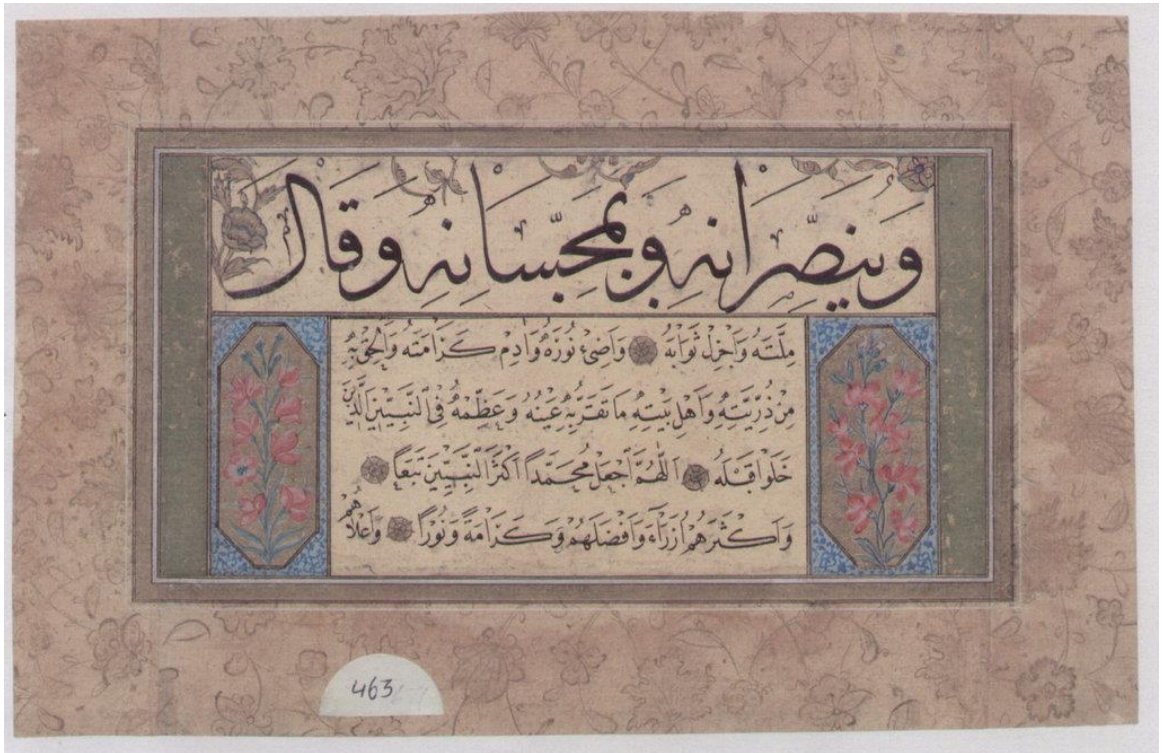 وَيُنَصِّرَانِهِ وَيُمَجِّسَانِهِ وَقَالَ
مِلَّتَهُ وَاَجْزِلْ ثَوَابَهُ وَاَضِئْ نُورَهُ وَاَدِمْ كَرَامَتَهُ وَاَلْحِقْ بِهِ
مِنْ ذُرِّيَّتِهِ وَاَهْلِ بَيْتِهِ مَا تَقَرُّ بِهِ عَيْنُهُ وَعَظِّمْهُ فِي النَّبِيِّينَ الَّذِينَ
خَلَوْا قَبْلَهُ اَللّٰهُمَّ اجْعَلْ مُحَمَّداً اَكْثَرَ النَّبِيِّينَ تَبَعاً
وَاَكْثَرَهُمْ اُزَرَاءَ وَاَفْضَلَهُمْ وَكَرَامَةً وَنُوراً وَاَعْلَاهُمْ
463